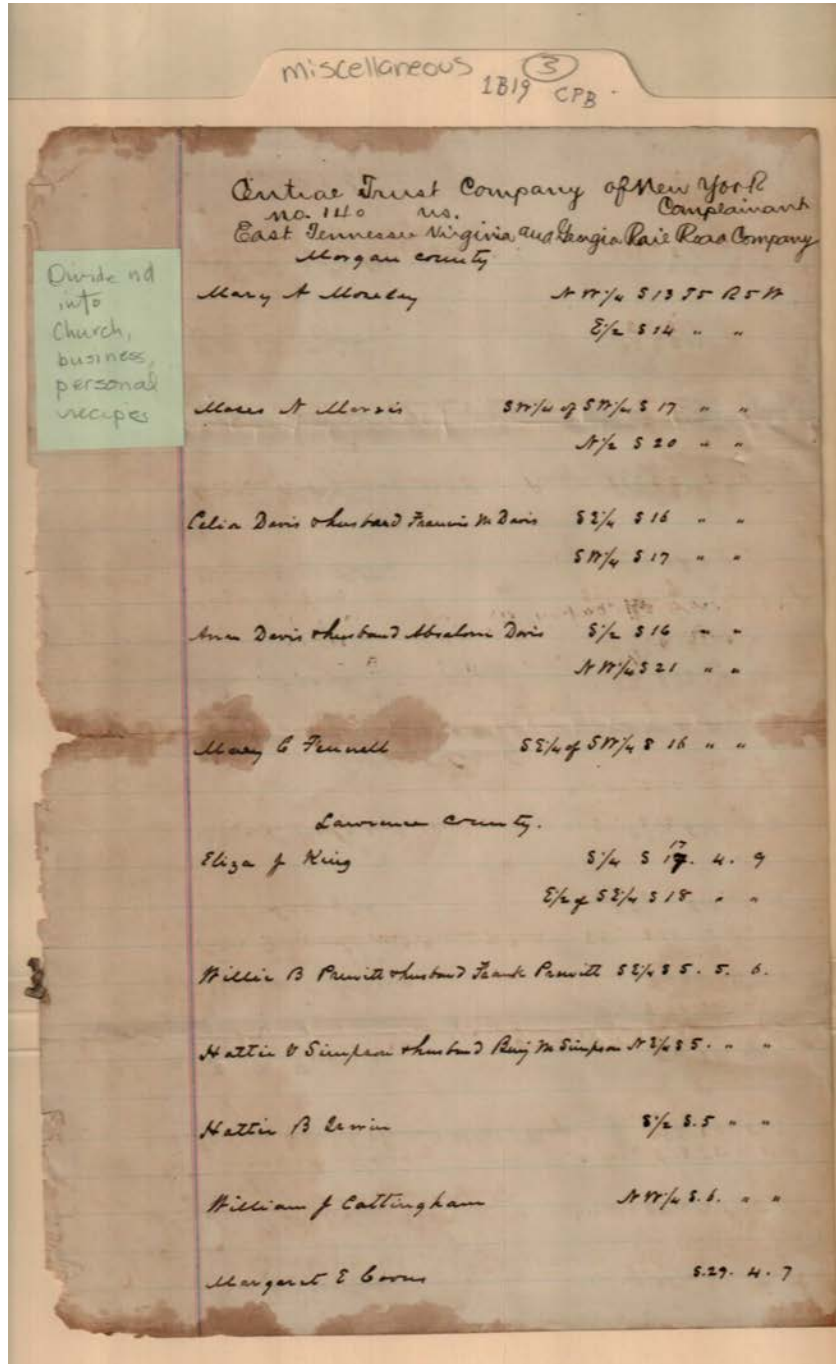 miscellaneous 3
1B19 CPB
Central Trust Company of New York
no. 140 vs. Complainant
East Tennessee Virginia and Georgia Rail Road Company
Morgan County
Divide nd
into
Church,
business,
personal
recipes
Mary A N W 1/4 S 13 T5 R 5 W
E 1/2 S 14 " "
Moses N Morris S W 1/4 of S W 1/4 S 17 " "
N 1/2 S 20 " "
Celia Davis & husband Francis M Davis S E 1/4 S 16 " "
S W 1/4 S 17 " "
Davis & husband Absalom Davis S 1/2 S 16 " "
N W 1/4 S 21 " "
Mary C Fennell S E 1/4 of S W 1/4 S 16 " "
Lawrence County.
Eliza J King S 1/4 S 17. 4. 9
E 1/2 of S E 1/4 S 18 " "
Willie B Prewitt & husband Frank Prewitt S E 1/4 S 5. 5. 6.
Hattie V Simpson & husband Benj M Simpson N E 1/4 S 5. " "
Hattie B Irwin S 1/2 S. 5 " "
William J Cottingham N W 1/4 S. 6. " "
Margaret E S. 29. 4. 7